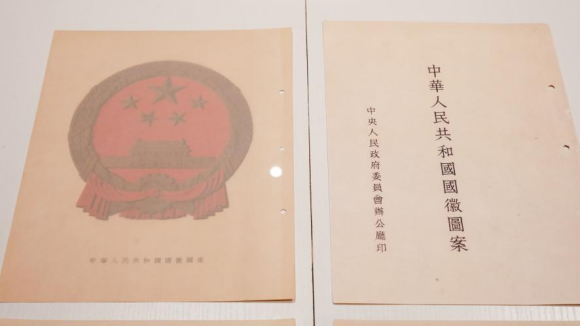 中華人民共和國國徽圖案
中華人民共和國國徽圖案
中央人民政府委員會辦公廳印